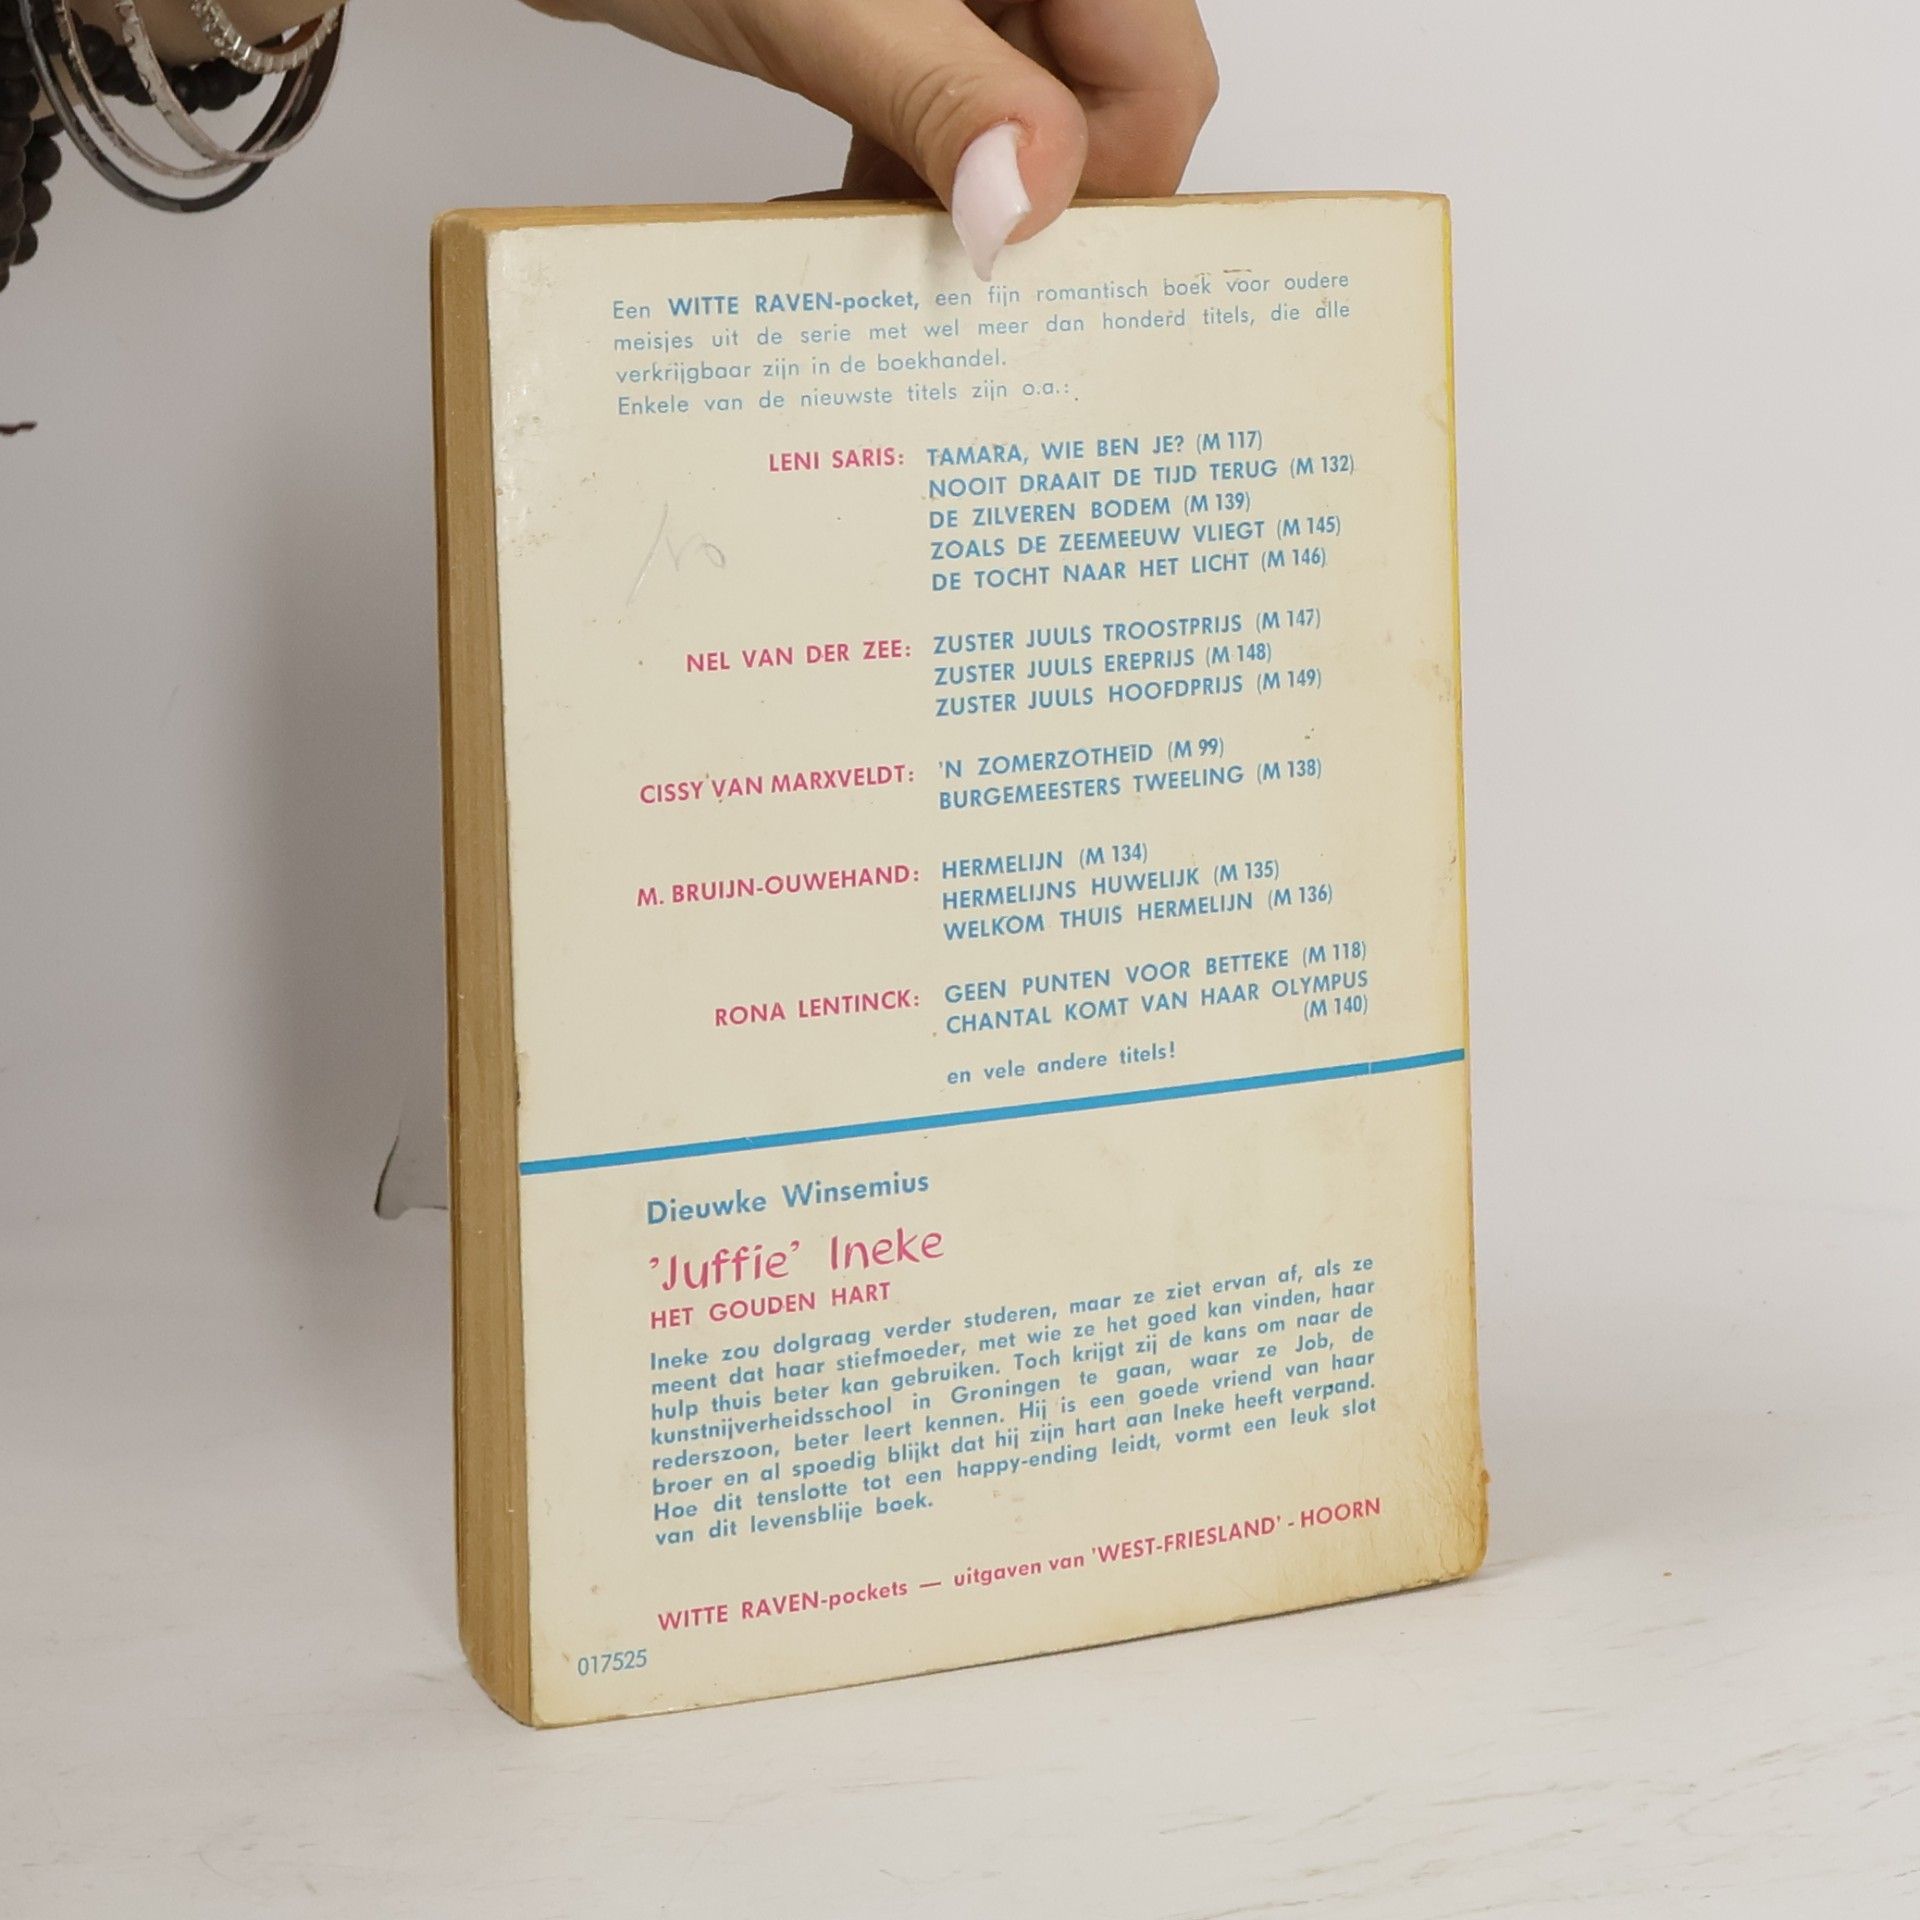 Een WITTE RAVEN-pocket, een fijn romantisch boek voor oudere
meisjes uit de serie met wel meer dan honderd titels, die alle
verkrijgbaar zijn in de boekhandel.
Enkele van de nieuwste titels zijn o.a.:
LENI SARIS: TAMARA, WIE BEN JE? (M 117)
NOOIT DRAAIT DE TIJD TERUG (M 132)
DE ZILVEREN BODEM (M 139)
ZOALS DE ZEEMEEUW VLIEGT (M 145)
DE TOCHT NAAR HET LICHT (M 146)
NEL VAN DER ZEE: ZUSTER JUULS TROOSTPRIJS (M 147)
ZUSTER JUULS EREPRIJS (M 148)
ZUSTER JUULS HOOFDPRIJS (M 149)
CISSY VAN MARXVELDT: 'N ZOMERZOTHEID (M 99)
BURGEMEESTERS TWEELING (M 138)
M. BRUIJN-OUWEHAND: HERMELIJN (M 134)
HERMELIJNS HUWELIJK (M 135)
WELKOM THUIS HERMELIJN (M 136)
RONA LENTINCK: GEEN PUNTEN VOOR BETTEKE (M 118)
CHANTAL KOMT VAN HAAR OLYMPUS
(M 140)
en vele andere titels!
Dieuwke Winsemius
'Juffie' Ineke
HET GOUDEN HART
Ineke zou dolgraag verder studeren, maar ze ziet ervan af, als ze
meent dat haar stiefmoeder, met wie ze het goed kan vinden, haar
hulp thuis beter kan gebruiken. Toch krijgt zij de kans om naar de
kunstnijverheidsschool in Groningen te gaan, waar ze Job, de
rederszoon, beter leert kennen. Hij is een goede vriend van haar
broer en al spoedig blijkt dat hij zijn hart aan Ineke heeft verpand.
Hoe dit tenslotte tot een happy-ending leidt, vormt een leuk slot
van dit levensblije boek.
WITTE RAVEN-pockets — uitgaven van 'WEST-FRIESLAND' - HOORN
017525